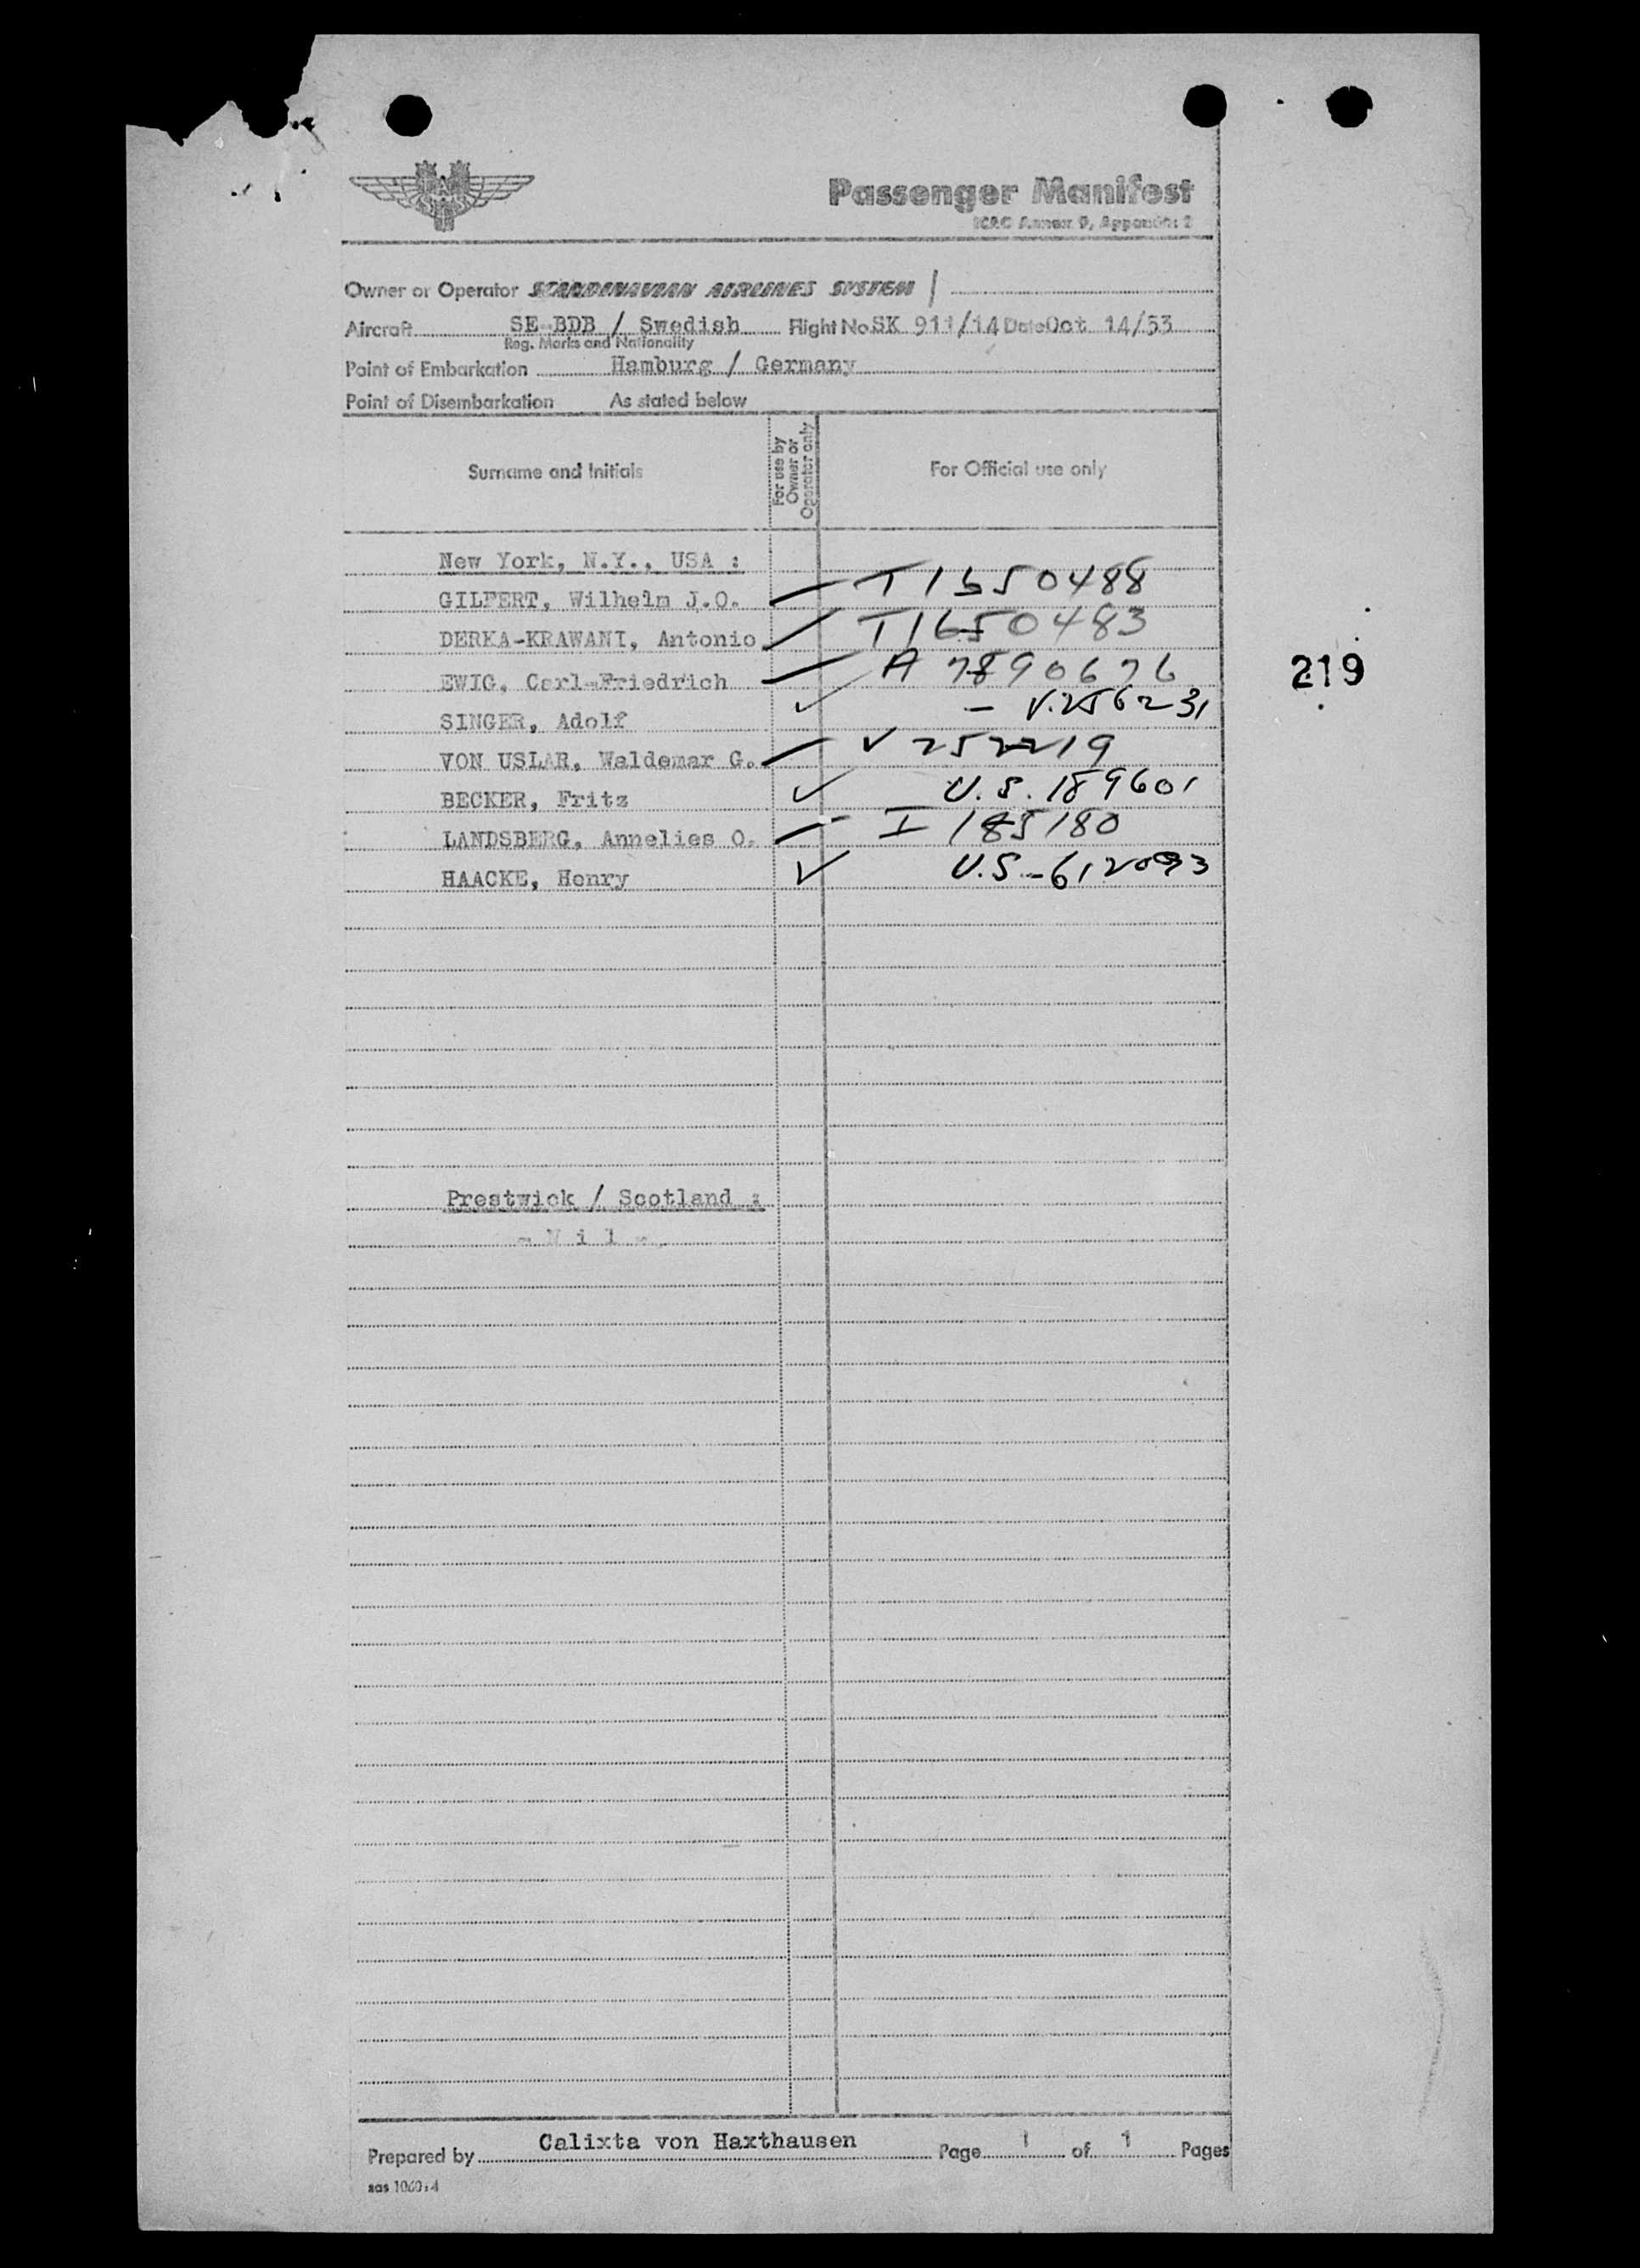 Passenger Manifest
ICAO Annex 9, Appendix 2
Owner or Operator SCANDINAVIAN AIRLINES SYSTEM
Aircraft SE-BDB / Swedish Flight No. SK 911/14 Date Oct 14/53
Reg. Marks and Nationality
Point of Embarkation Hamburg / Germany
Point of Disembarkation As stated below
Surname and Initials
For use by
Owner or
Operator only
For Official use only
New York, N.Y., USA :
GILFERT, Wilhelm J.O. T1650488
DERKA-KRAWANI, Antonio T1650483
EWIG, Carl-Friedrich A 7890676
219
SINGER, Adolf - V.256231
VON USLAR, Waldemar G. V 252219
BECKER, Fritz U.S. 189601
LANDSBERG, Annelies O. I 185180
HAACKE, Henry U.S.-612093
Prestwick / Scotland :
- N i l -
Prepared by Calixta von Haxthausen Page 1 of 1 Pages
sas 1060:4